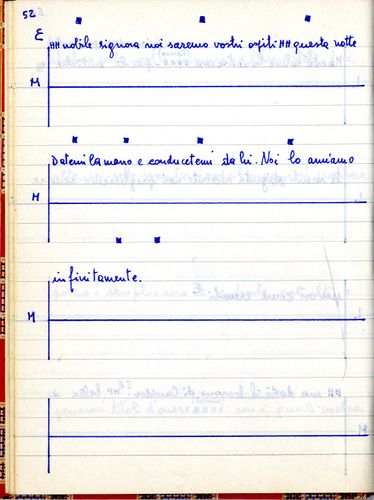 52
E
## nobile signora noi saremo vostri ospiti ## questa notte
M
Datemi la mano e conducetemi da lui. Noi lo amiamo
M
infinitamente.
M
M